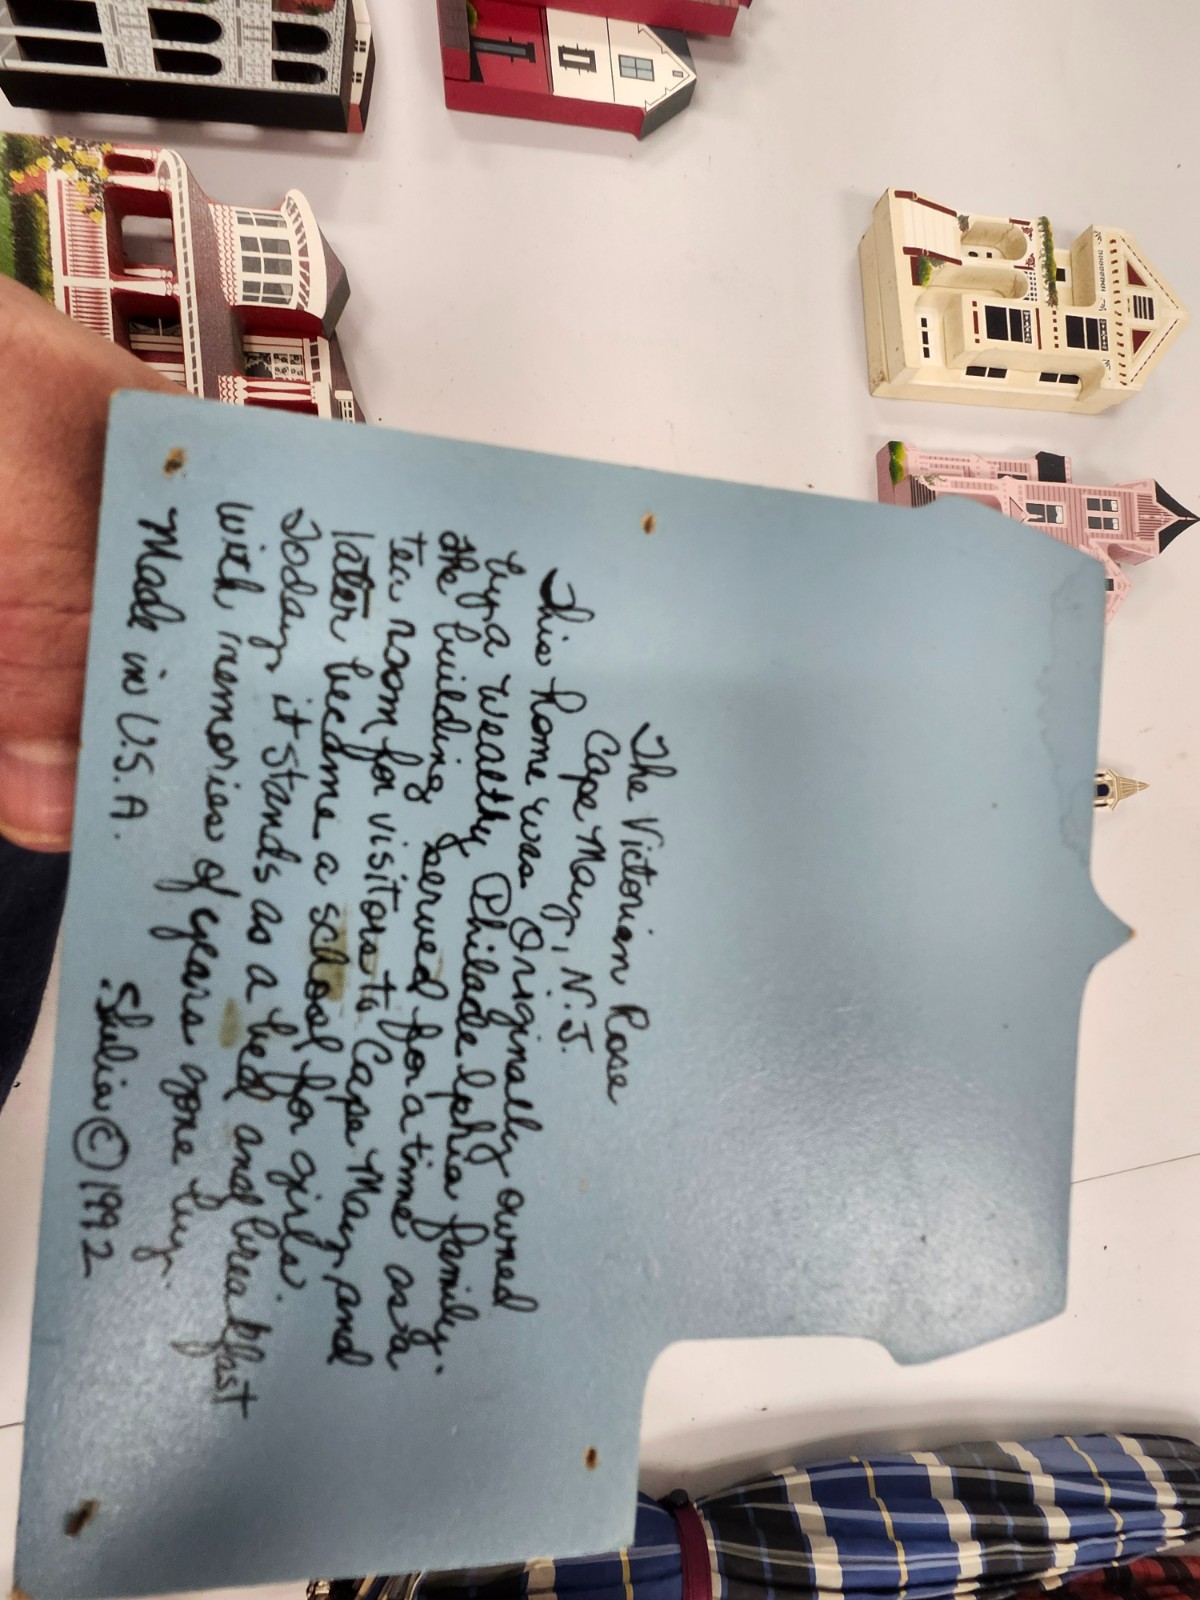 The Victorian Rose
Cape May, N.J.
This home was Originally owned
by a wealthy Philadelphia family.
the building served for a time as a
tea room for visitors to Cape May, and
later became a school for girls.
Today, it stands as a bed and breakfast
with memories of years gone by.
Made in U.S.A.
Shelia © 1992